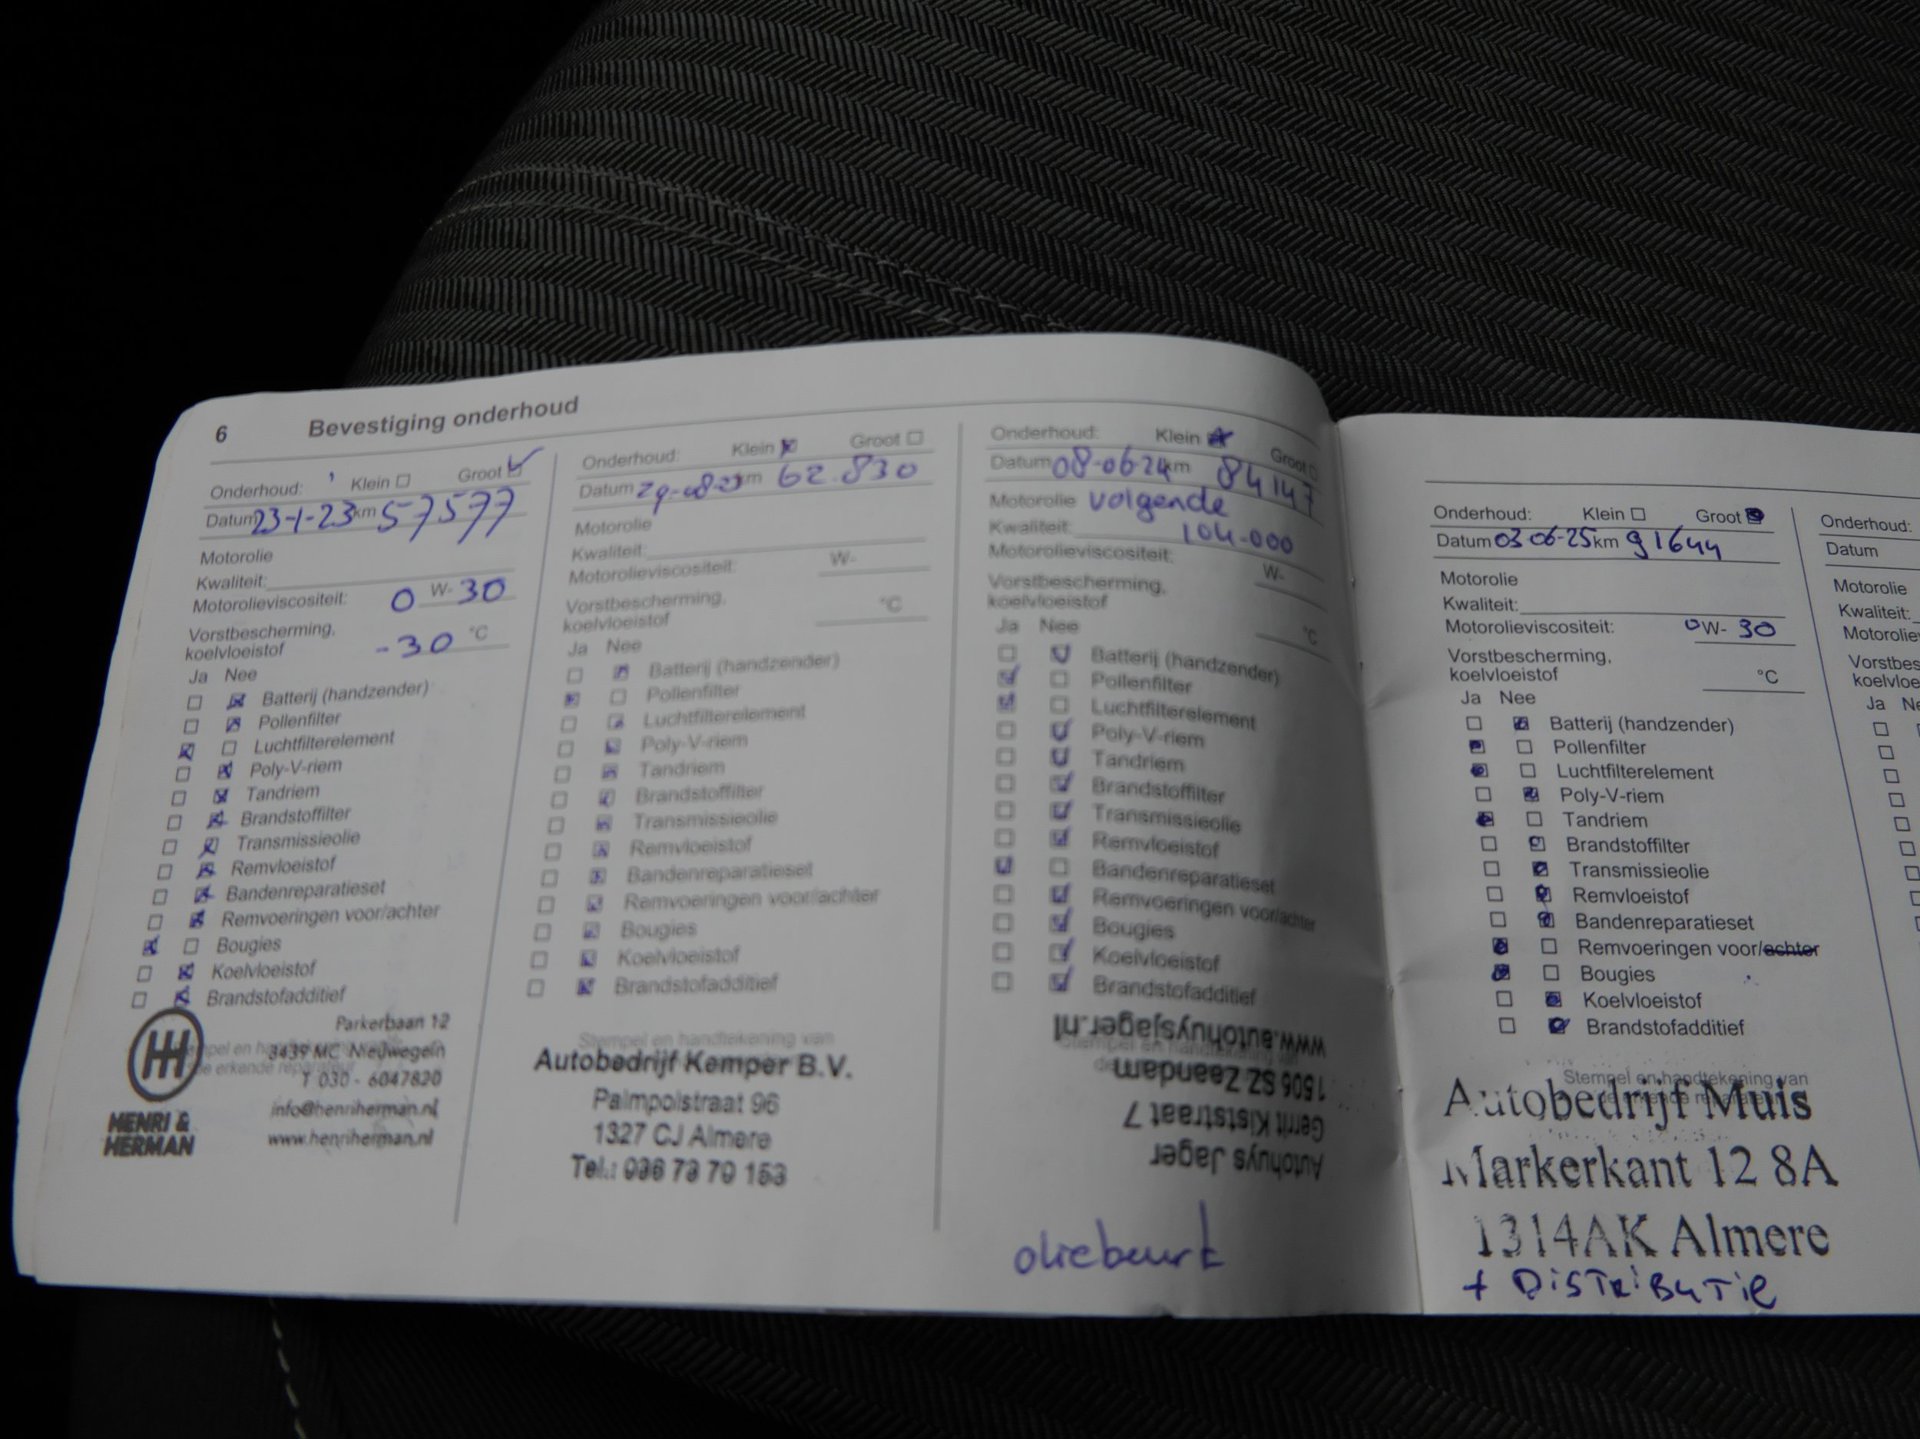 6 Bevestiging onderhoud
Onderhoud: Klein Groot
Datum 23-1-23 km 57577
Motorolie
Kwaliteit:
Motorolieviscositeit: 0 W- 30
Vorstbescherming,
koelvloeistof -30 °C
Ja Nee
Batterij (handzender)
Pollenfilter
Luchtfilterelement
Poly-V-riem
Tandriem
Brandstoffilter
Transmissieolie
Remvloeistof
Bandenreparatieset
Remvoeringen voor/achter
Bougies
Koelvloeistof
Brandstofadditief
Parkerbaan 12
3439 MC Nieuwegein
T 030 - 6047820
info@henriherman.nl
www.henriherman.nl
HENRI &
HERMAN
Onderhoud: Klein Groot
Datum 29-08-23 km 62.830
Motorolie
Kwaliteit:
Motorolieviscositeit: W-
Vorstbescherming,
koelvloeistof °C
Ja Nee
Batterij (handzender)
Pollenfilter
Luchtfilterelement
Poly-V-riem
Tandriem
Brandstoffilter
Transmissieolie
Remvloeistof
Bandenreparatieset
Remvoeringen voor/achter
Bougies
Koelvloeistof
Brandstofadditief
Stempel en handtekening van
Autobedrijf Kemper B.V.
Palmpolstraat 96
1327 CJ Almere
Tel.: 036 73 70 153
Onderhoud: Klein Groot
Datum 08-06-24 km 84147
Motorolie volgende
Kwaliteit: 104-000
Motorolieviscositeit: W-
Vorstbescherming,
koelvloeistof °C
Ja Nee
Batterij (handzender)
Pollenfilter
Luchtfilterelement
Poly-V-riem
Tandriem
Brandstoffilter
Transmissieolie
Remvloeistof
Bandenreparatieset
Remvoeringen voor/achter
Bougies
Koelvloeistof
Brandstofadditief
Autohuys Jager
Gerrit Kiststraat 7
1506 SZ Zaandam
www.autohuysjager.nl
oliebeurt
Onderhoud: Klein Groot
Datum 03-06-25 km 91644
Motorolie
Kwaliteit:
Motorolieviscositeit: 0 W- 30
Vorstbescherming,
koelvloeistof °C
Ja Nee
Batterij (handzender)
Pollenfilter
Luchtfilterelement
Poly-V-riem
Tandriem
Brandstoffilter
Transmissieolie
Remvloeistof
Bandenreparatieset
Remvoeringen voor/achter
Bougies
Koelvloeistof
Brandstofadditief
Stempel en handtekening van
Autobedrijf Muis
Markerkant 12 8A
1314AK Almere
+ DISTRIBUTIE
Onderhoud:
Datum
Motorolie
Kwaliteit:
Ja